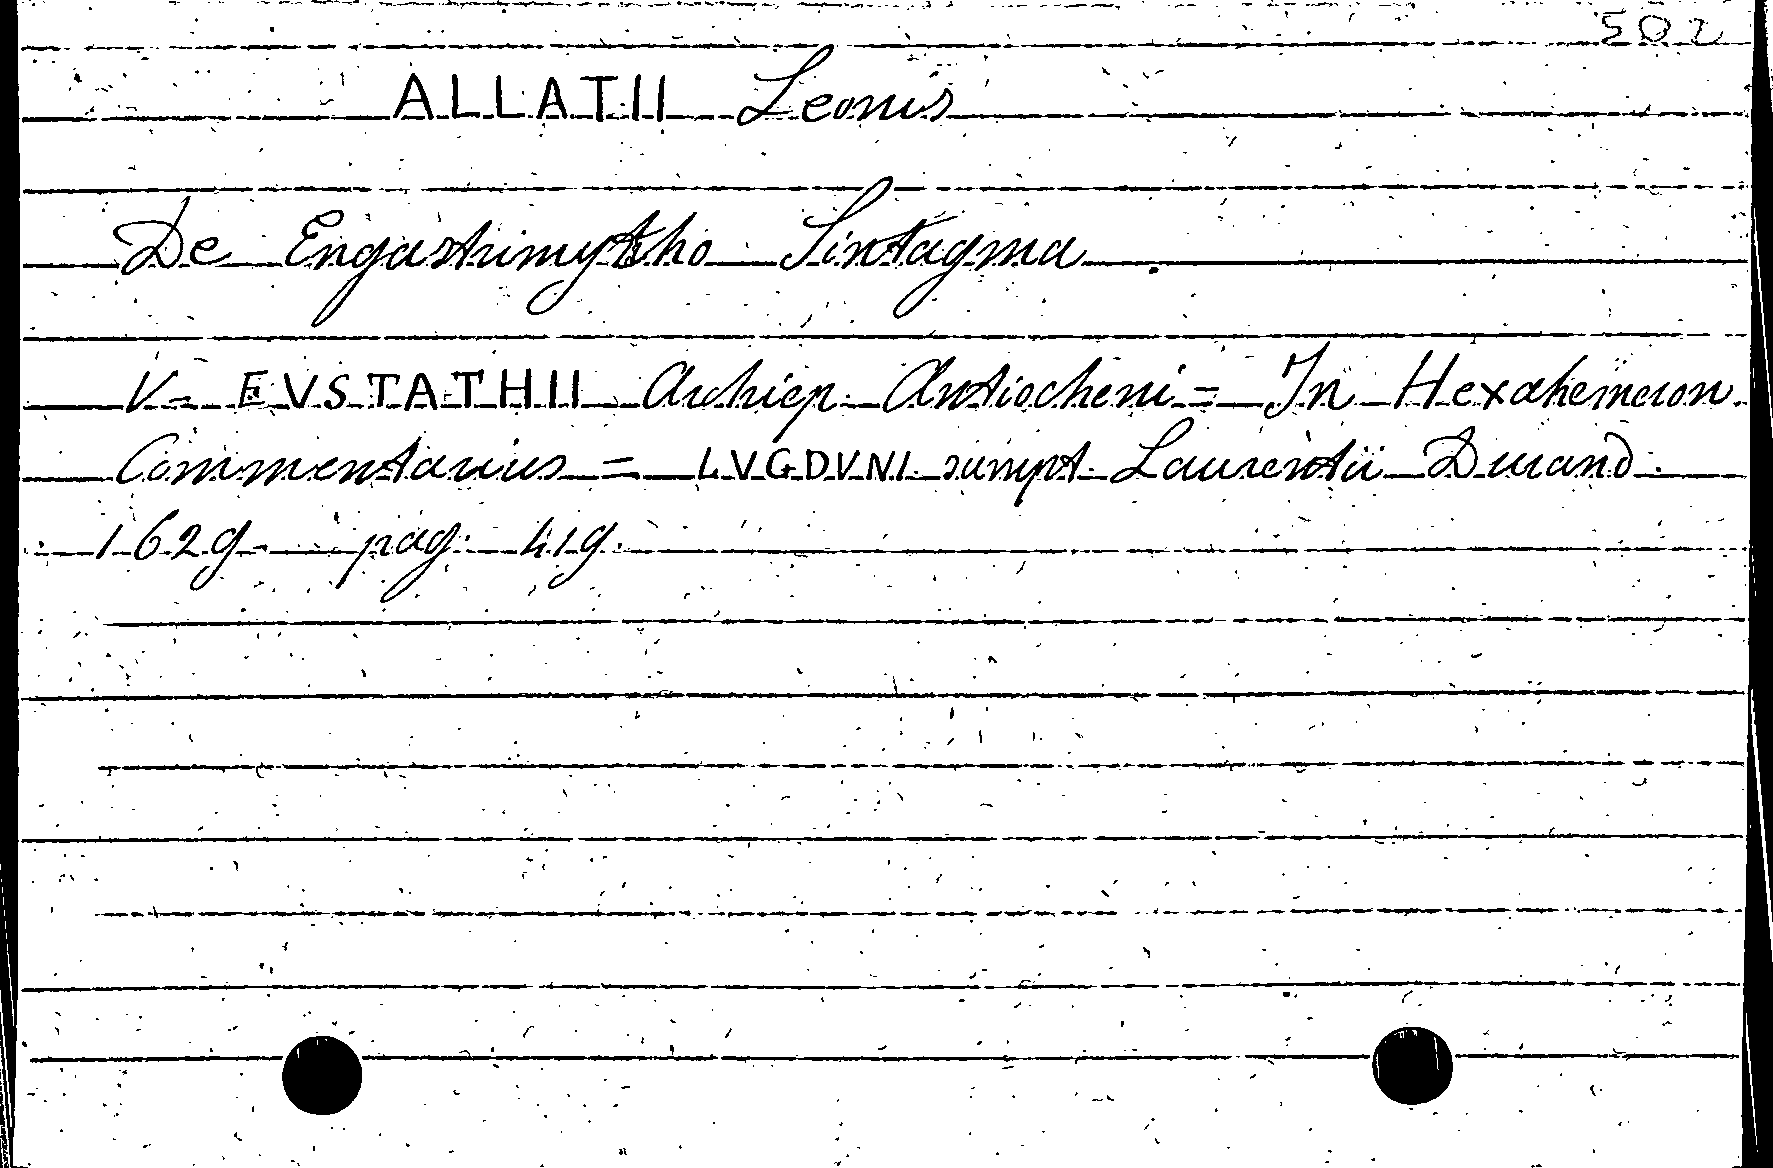 502
ALLATII Leonis
De Engastrimytho Sintagma.
V. EVSTATHII Archiep. Antiocheni = In Hexahemeron.
Commentarius = LVGDVNI sumpt. Laurentii Durand.
1629. pag. 419.